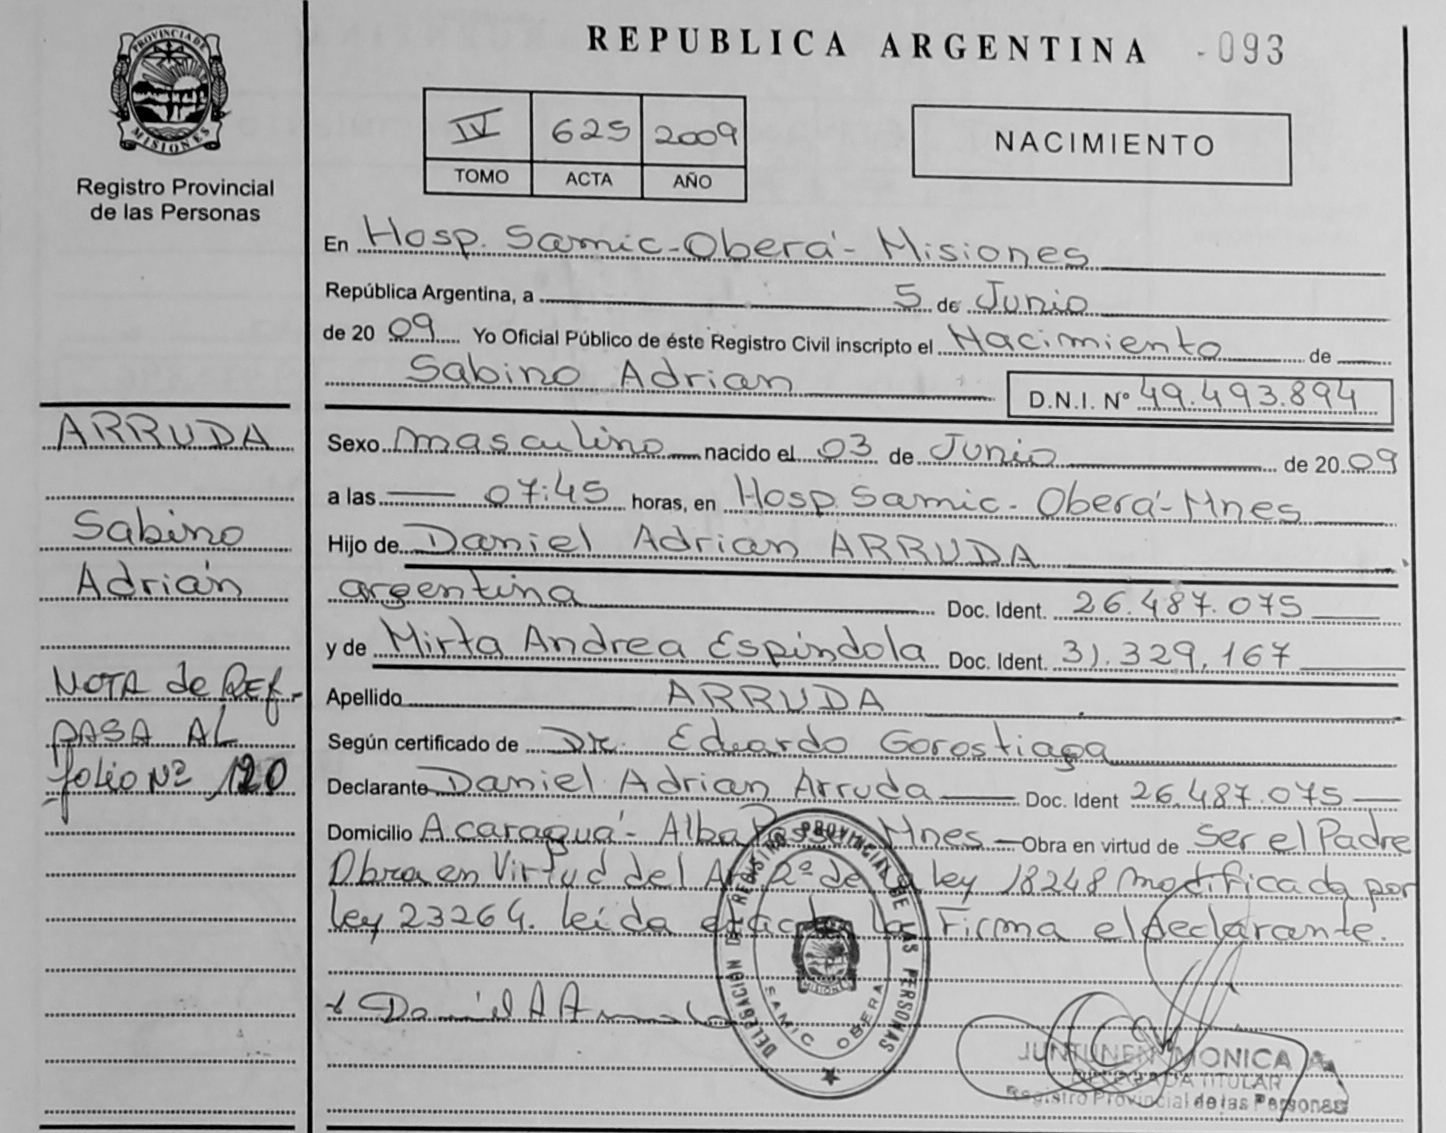 PROVINCIA DE
MISIONES
Registro Provincial
de las Personas
REPUBLICA ARGENTINA -093
IV 625 2009
TOMO ACTA AÑO
NACIMIENTO
En Hosp. Samic-Oberá-Misiones
República Argentina, a 5 de Junio
de 20 09 Yo Oficial Público de éste Registro Civil inscripto el Nacimiento de
Sabino Adrian D.N.I. N° 49.493.894
Sexo masculino nacido el 03 de Junio de 20 09
a las 07:45 horas, en Hosp. Samic - Oberá-Mnes
Hijo de Daniel Adrian ARRUDA
argentina Doc. Ident. 26.487.075
y de Mirta Andrea Espindola Doc. Ident. 31.329.167
Apellido ARRUDA
Según certificado de Dr. Eduardo Gorostiaga
Declarante Daniel Adrian Arruda Doc. Ident 26.487.075
Domicilio Acaraguá- Alba Posse Mnes Obra en virtud de Ser el Padre
Obra en Virtud del Art 2º de la ley 18248 modificada por
ley 23264. leída el acta la Firma el declarante.
Daniel A Arruda
ARRUDA
Sabino
Adrián
NOTA de REF-
PASA AL
folio Nº 120
DELEGACION DE REGISTRO PROVINCIAL DE LAS PERSONAS
SAMIC OBERA
MISIONES
JUNTUNEN MONICA A.
DELEGADA TITULAR
Registro Provincial de las Personas